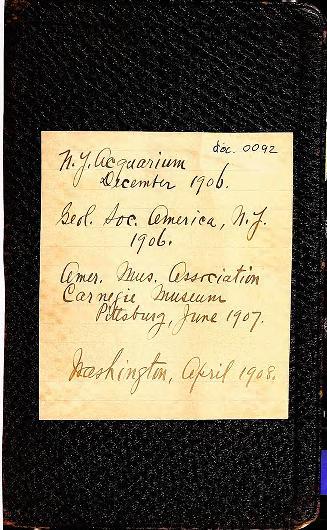 doc. 0092
N.Y. Acquarium
December 1906.
Geol. Soc. America, N.Y.
1906.
Amer. Mus. Association
Carnegie Museum
Pittsburg, June 1907.
Washington, April 1908.